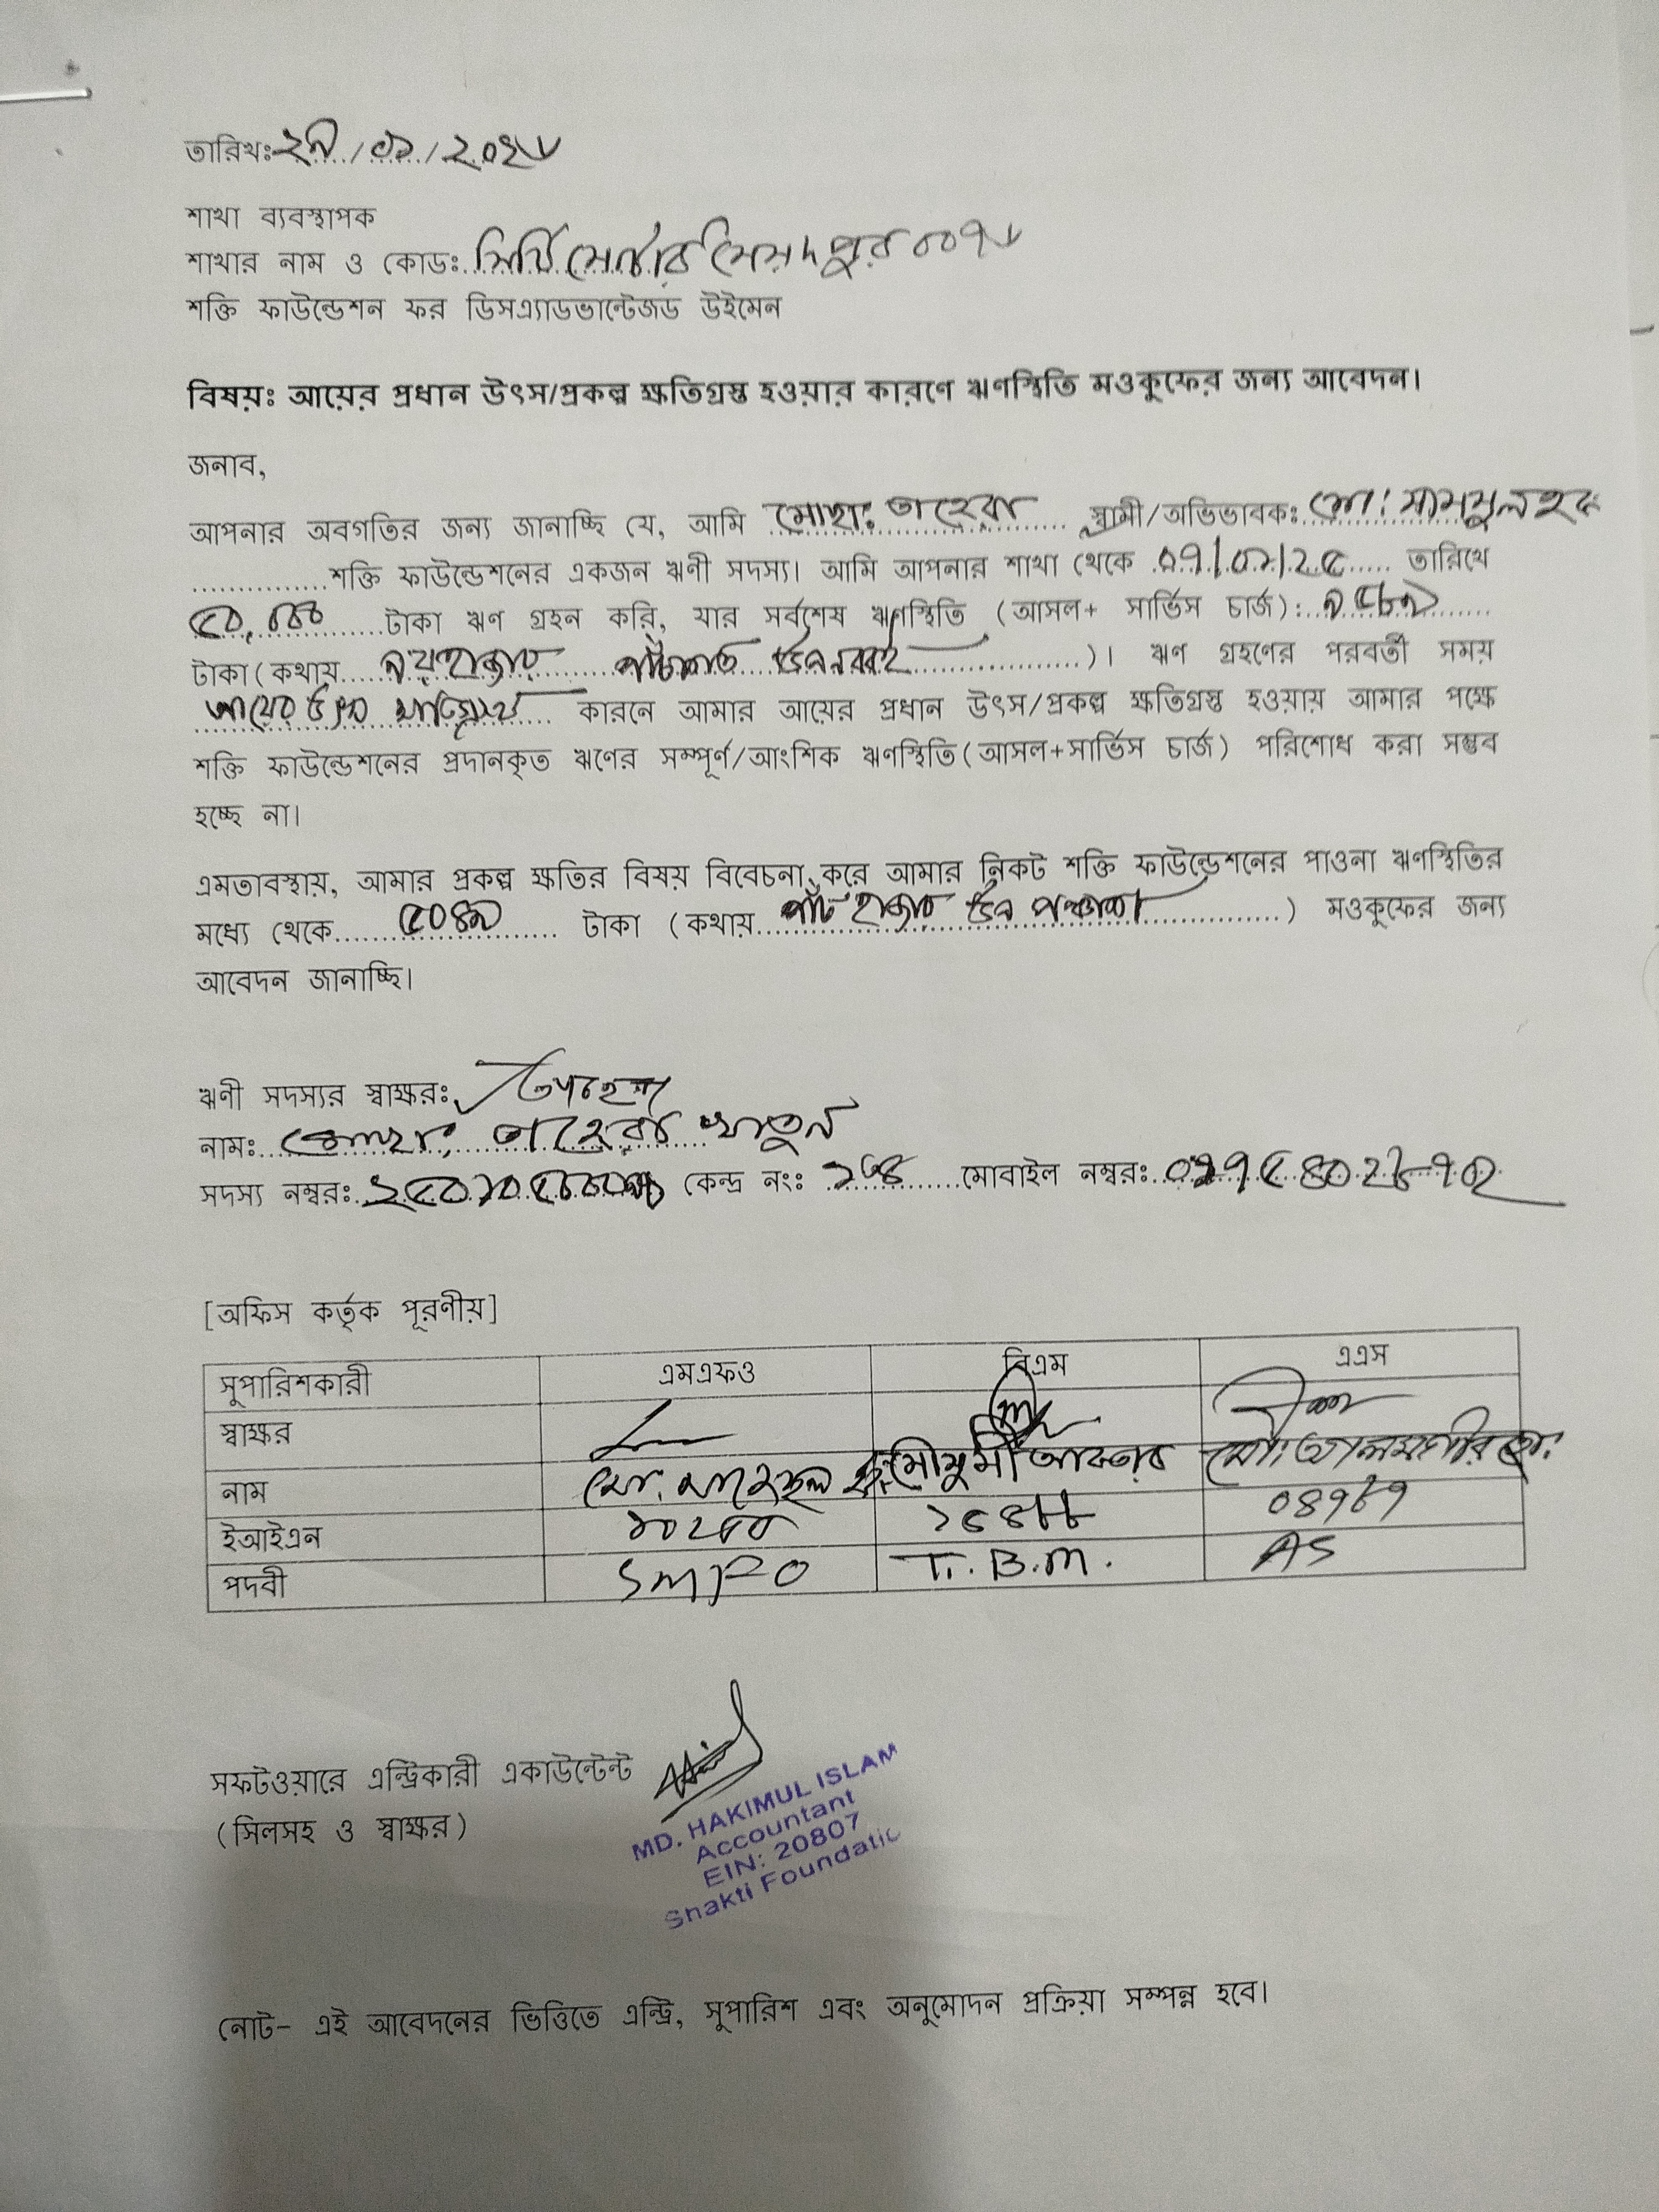 তারিখঃ
শাখা ব্যবস্থাপক
শাখার নাম ও কোডঃ সৈয়দপুর
শক্তি ফাউন্ডেশন ফর ডিসএ্যাডভান্টেজড উইমেন
বিষয়ঃ আয়ের প্রধান উৎস/প্রকল্প ক্ষতিগ্রস্ত হওয়ার কারণে ঋণস্থিতি মওকুফের জন্য আবেদন।
জনাব,
আপনার অবগতির জন্য জানাচ্ছি যে, আমি মোছাঃ তাহেরা স্বামী/অভিভাবকঃ মো: সামসুল হক
শক্তি ফাউন্ডেশনের একজন ঋণী সদস্য। আমি আপনার শাখা থেকে তারিখে
৫০,০০০ টাকা ঋণ গ্রহন করি, যার সর্বশেষ ঋণস্থিতি (আসল+ সার্ভিস চার্জ):
টাকা(কথায় নয় হাজার পাঁচশত )। ঋণ গ্রহণের পরবর্তী সময়
আয়ের উৎস কারনে আমার আয়ের প্রধান উৎস/প্রকল্প ক্ষতিগ্রস্ত হওয়ায় আমার পক্ষে
শক্তি ফাউন্ডেশনের প্রদানকৃত ঋণের সম্পূর্ণ/আংশিক ঋণস্থিতি(আসল+সার্ভিস চার্জ) পরিশোধ করা সম্ভব
হচ্ছে না।
এমতাবস্থায়, আমার প্রকল্প ক্ষতির বিষয় বিবেচনা করে আমার নিকট শক্তি ফাউন্ডেশনের পাওনা ঋণস্থিতির
মধ্যে থেকে ৫০৪৯ টাকা (কথায় পাঁচ হাজার উন পঞ্চাশ ) মওকুফের জন্য
আবেদন জানাচ্ছি।
ঋণী সদস্যর স্বাক্ষরঃ
নামঃ মোছাঃ তাহেরা খাতুন
সদস্য নম্বরঃ কেন্দ্র নংঃ মোবাইল নম্বরঃ
[অফিস কর্তৃক পূরণীয়]
সুপারিশকারী এমএফও বিএম এএস
স্বাক্ষর
নাম মো. মৌসুমী আক্তার মো: আলমগীর
ইআইএন ১৫৪৮৮ ০৪৭৮৭
পদবী SMFO T.B.M. AS
সফটওয়ারে এন্ট্রিকারী একাউন্টেন্ট
(সিলসহ ও স্বাক্ষর)
MD. HAKIMUL ISLAM
Accountant
EIN: 20807
Shakti Foundatic
নোট- এই আবেদনের ভিত্তিতে এন্ট্রি, সুপারিশ এবং অনুমোদন প্রক্রিয়া সম্পন্ন হবে।